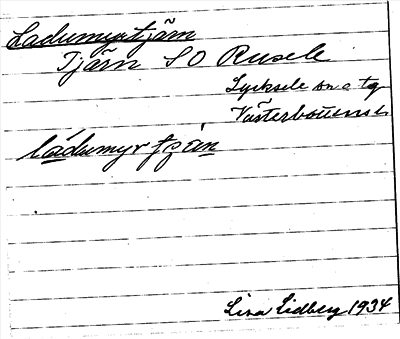 Ladumyrtjärn
Tjärn SO Rusele
Lycksele sn o tg
Västerbottens l.
ládumyrtjæ̀n
Lisa Lidberg 1934